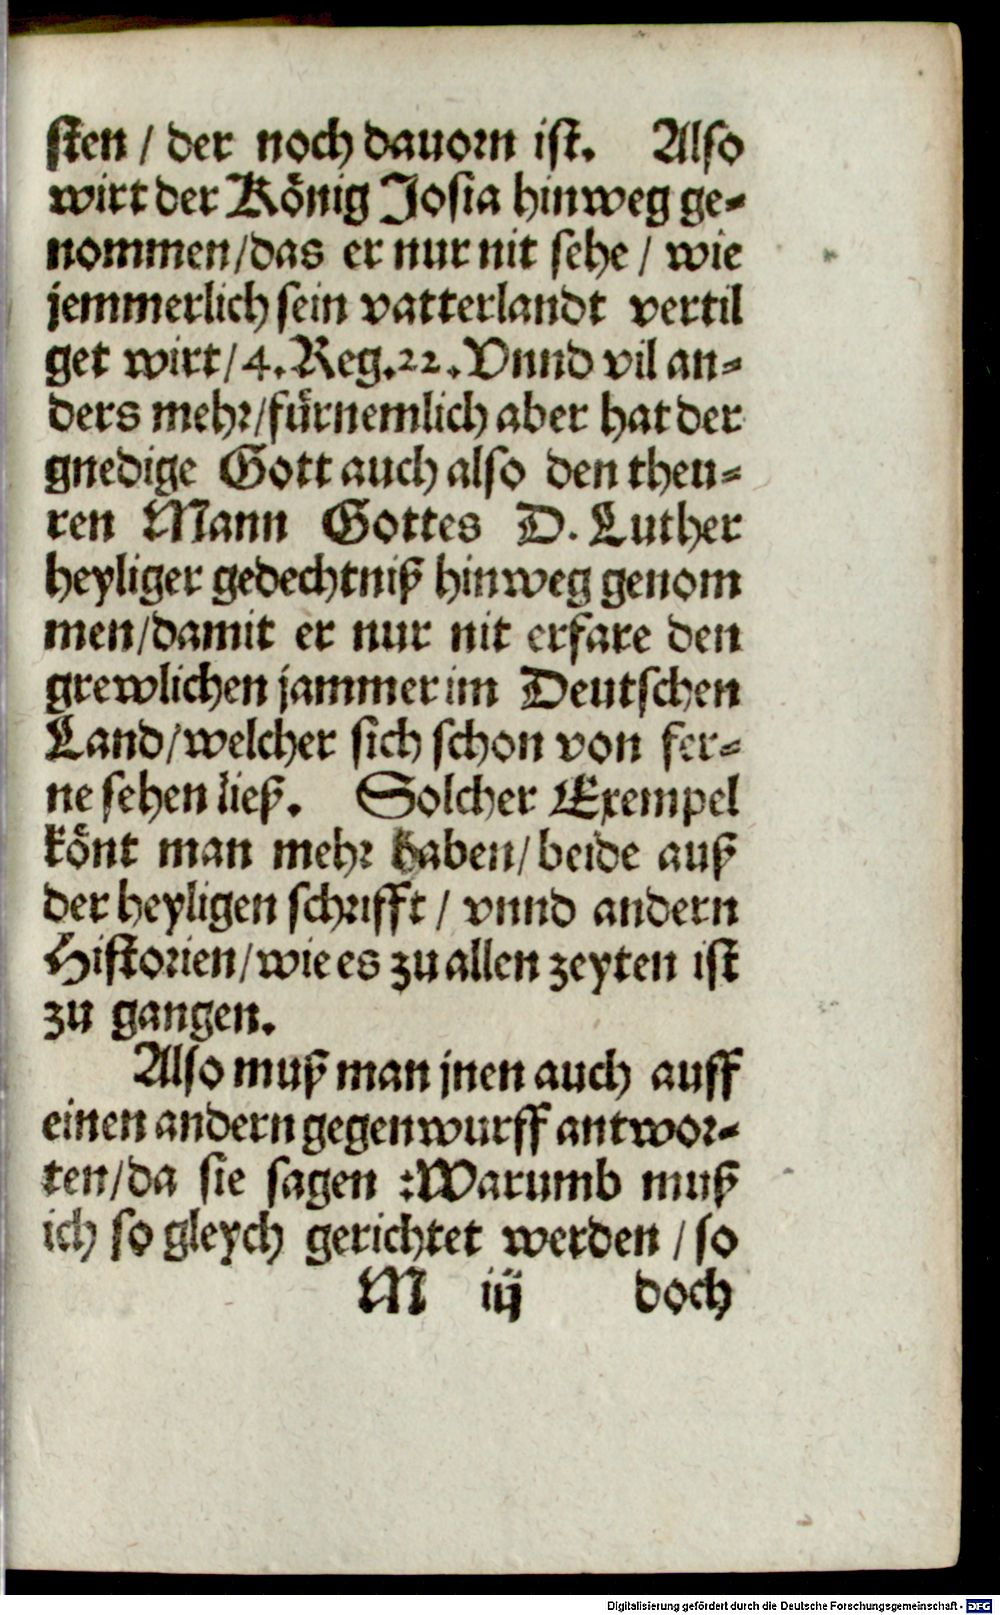 sten / der noch dauorn ist. Also
wirt der König Josia hinweg ge-
nommen/das er nur nit sehe / wie
jemmerlich sein vatterlandt vertil
get wirt/4.Reg.22.Vnnd vil an-
ders mehr/fürnemlich aber hat der
gnedige Gott auch also den theu-
ren Mann Gottes D. Luther
heyliger gedechtniß hinweg genom
men/damit er nur nit erfare den
grewlichen jammer im Deutschen
Land/welcher sich schon von fer-
ne sehen ließ. Solcher Exempel
könt man mehr haben/beide auß
der heyligen schrifft / vnnd andern
Historien/wie es zu allen zeyten ist
zu gangen.
Also muß man jnen auch auff
einen andern gegenwurff antwor-
ten/da sie sagen :Warumb muß
ich so gleych gerichtet werden / so
M iij doch
Digitalisierung gefördert durch die Deutsche Forschungsgemeinschaft - DFG